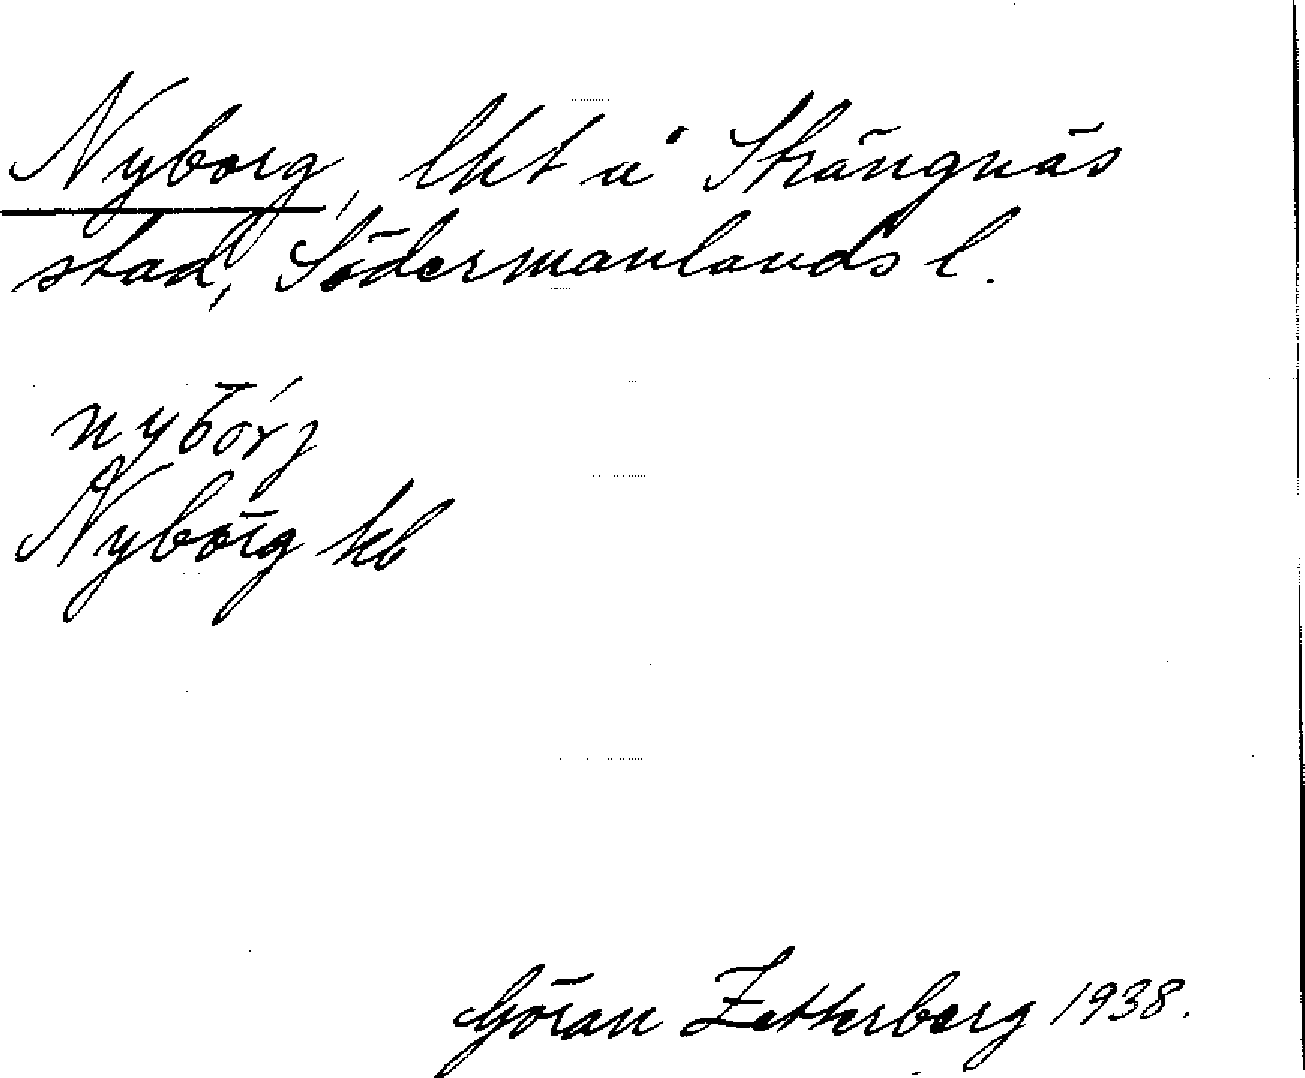 Nyborg, lht å Strängnäs
stad, Södermanlands l.
nybórj
Nyborg kb
Göran Zetterberg 1938.